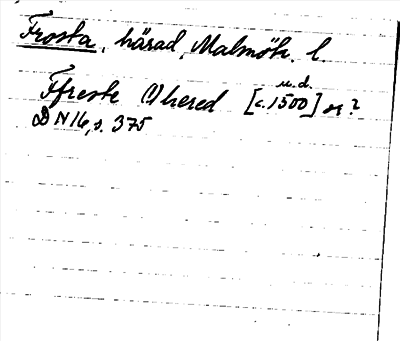 Frosta, härad, Malmöh. l.
u.d.
Ffreste (!) hered [c. 1500] or?
DN 16, s. 375